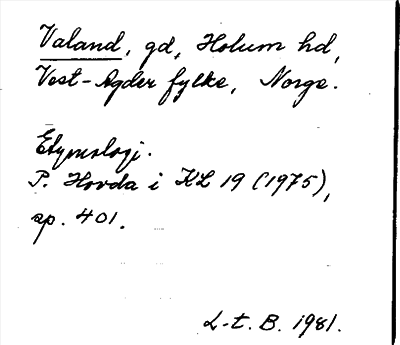 Valand, gd, Holum hd,
Vest-Agder fylke, Norge.
Etymologi.
P. Hovda i KL 19 (1975),
sp. 401.
L-t. B. 1981.